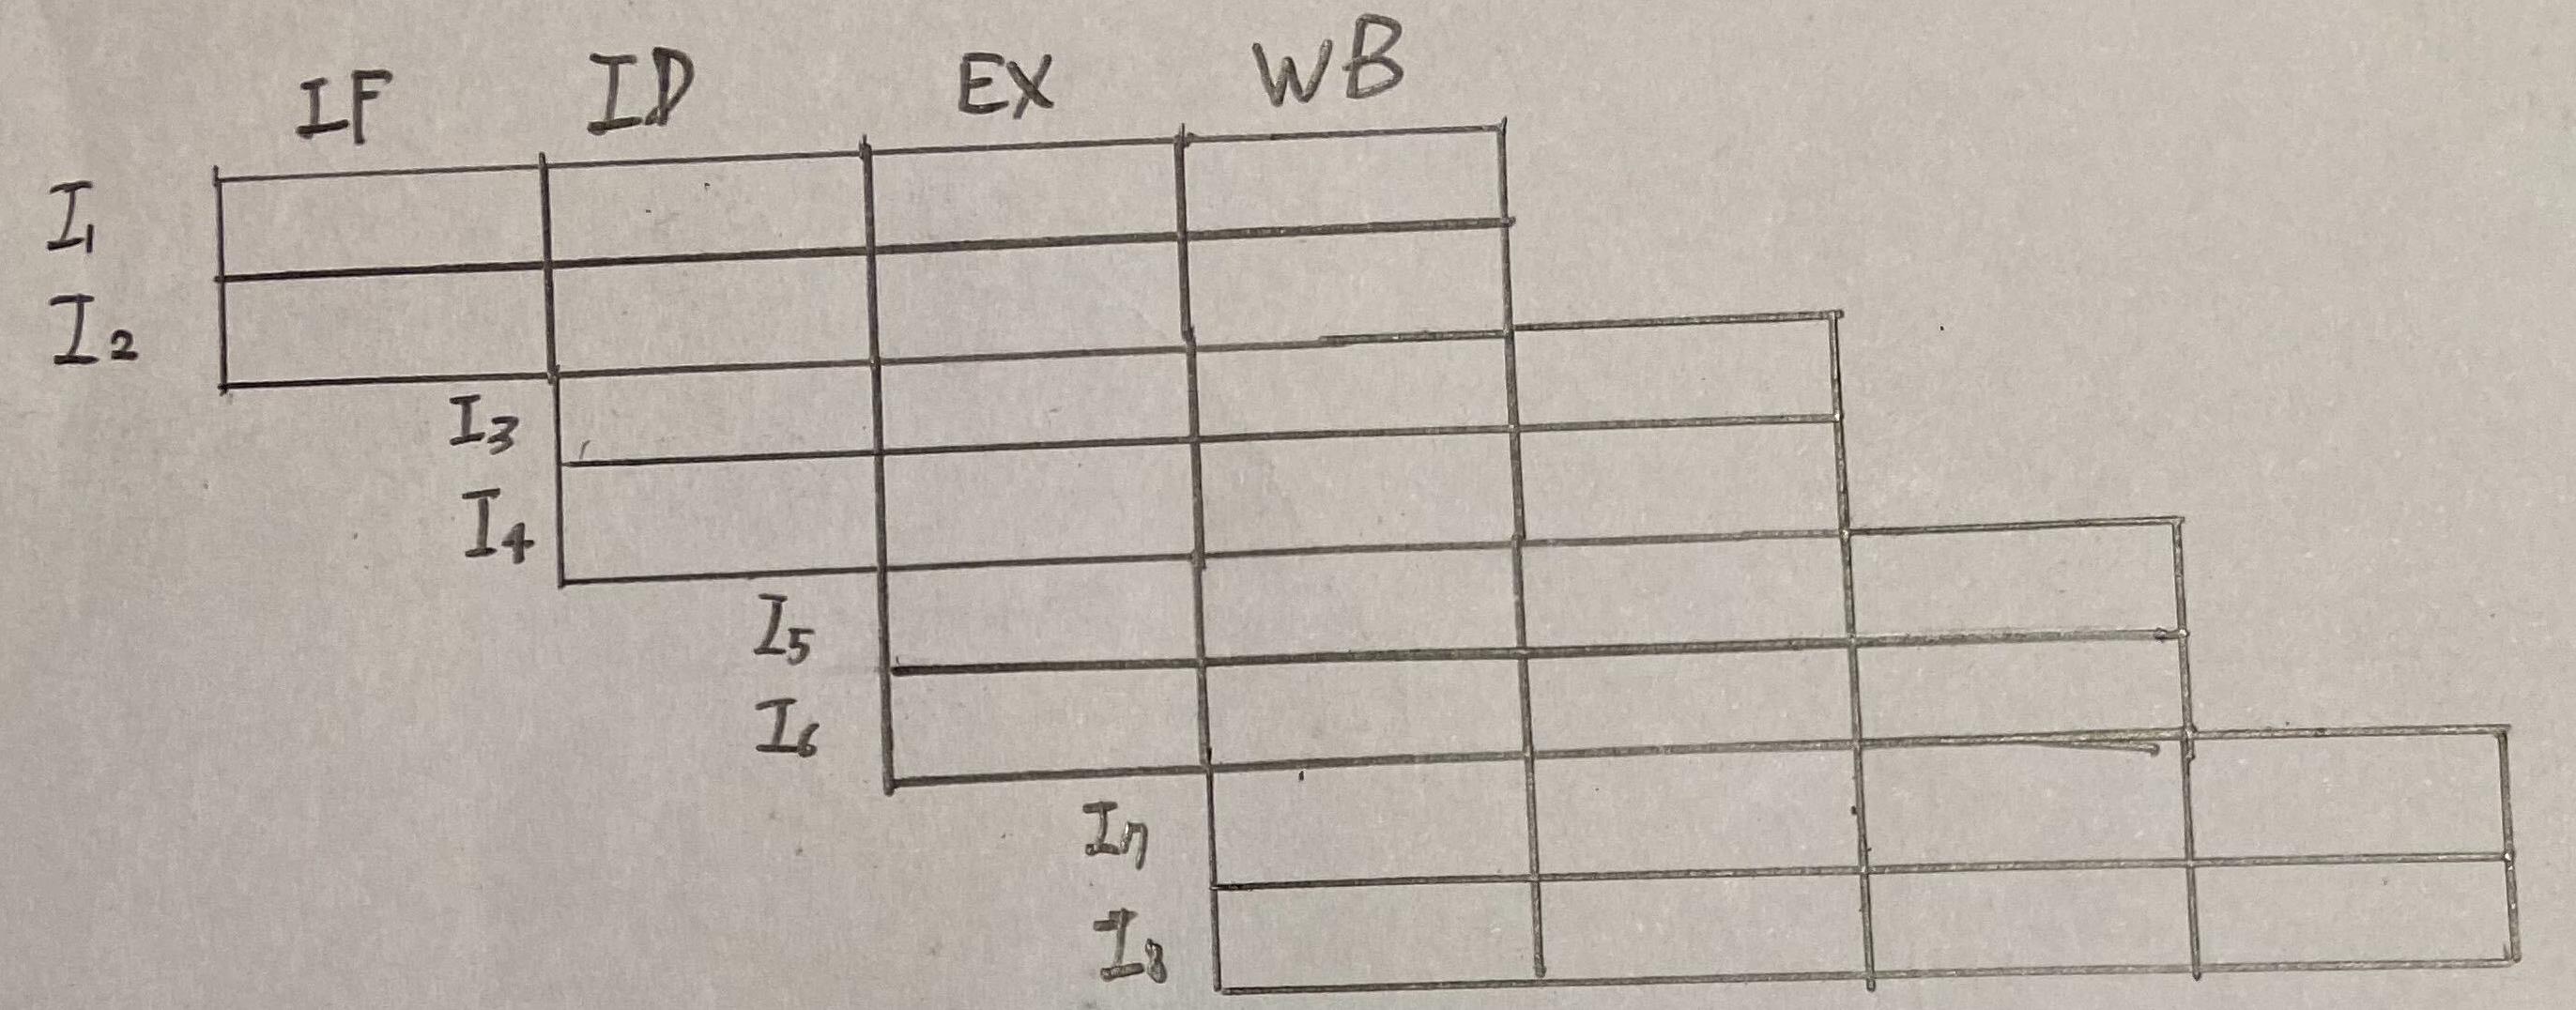 IF ID EX WB
I1
I2
I3
I4
I5
I6
I7
I8